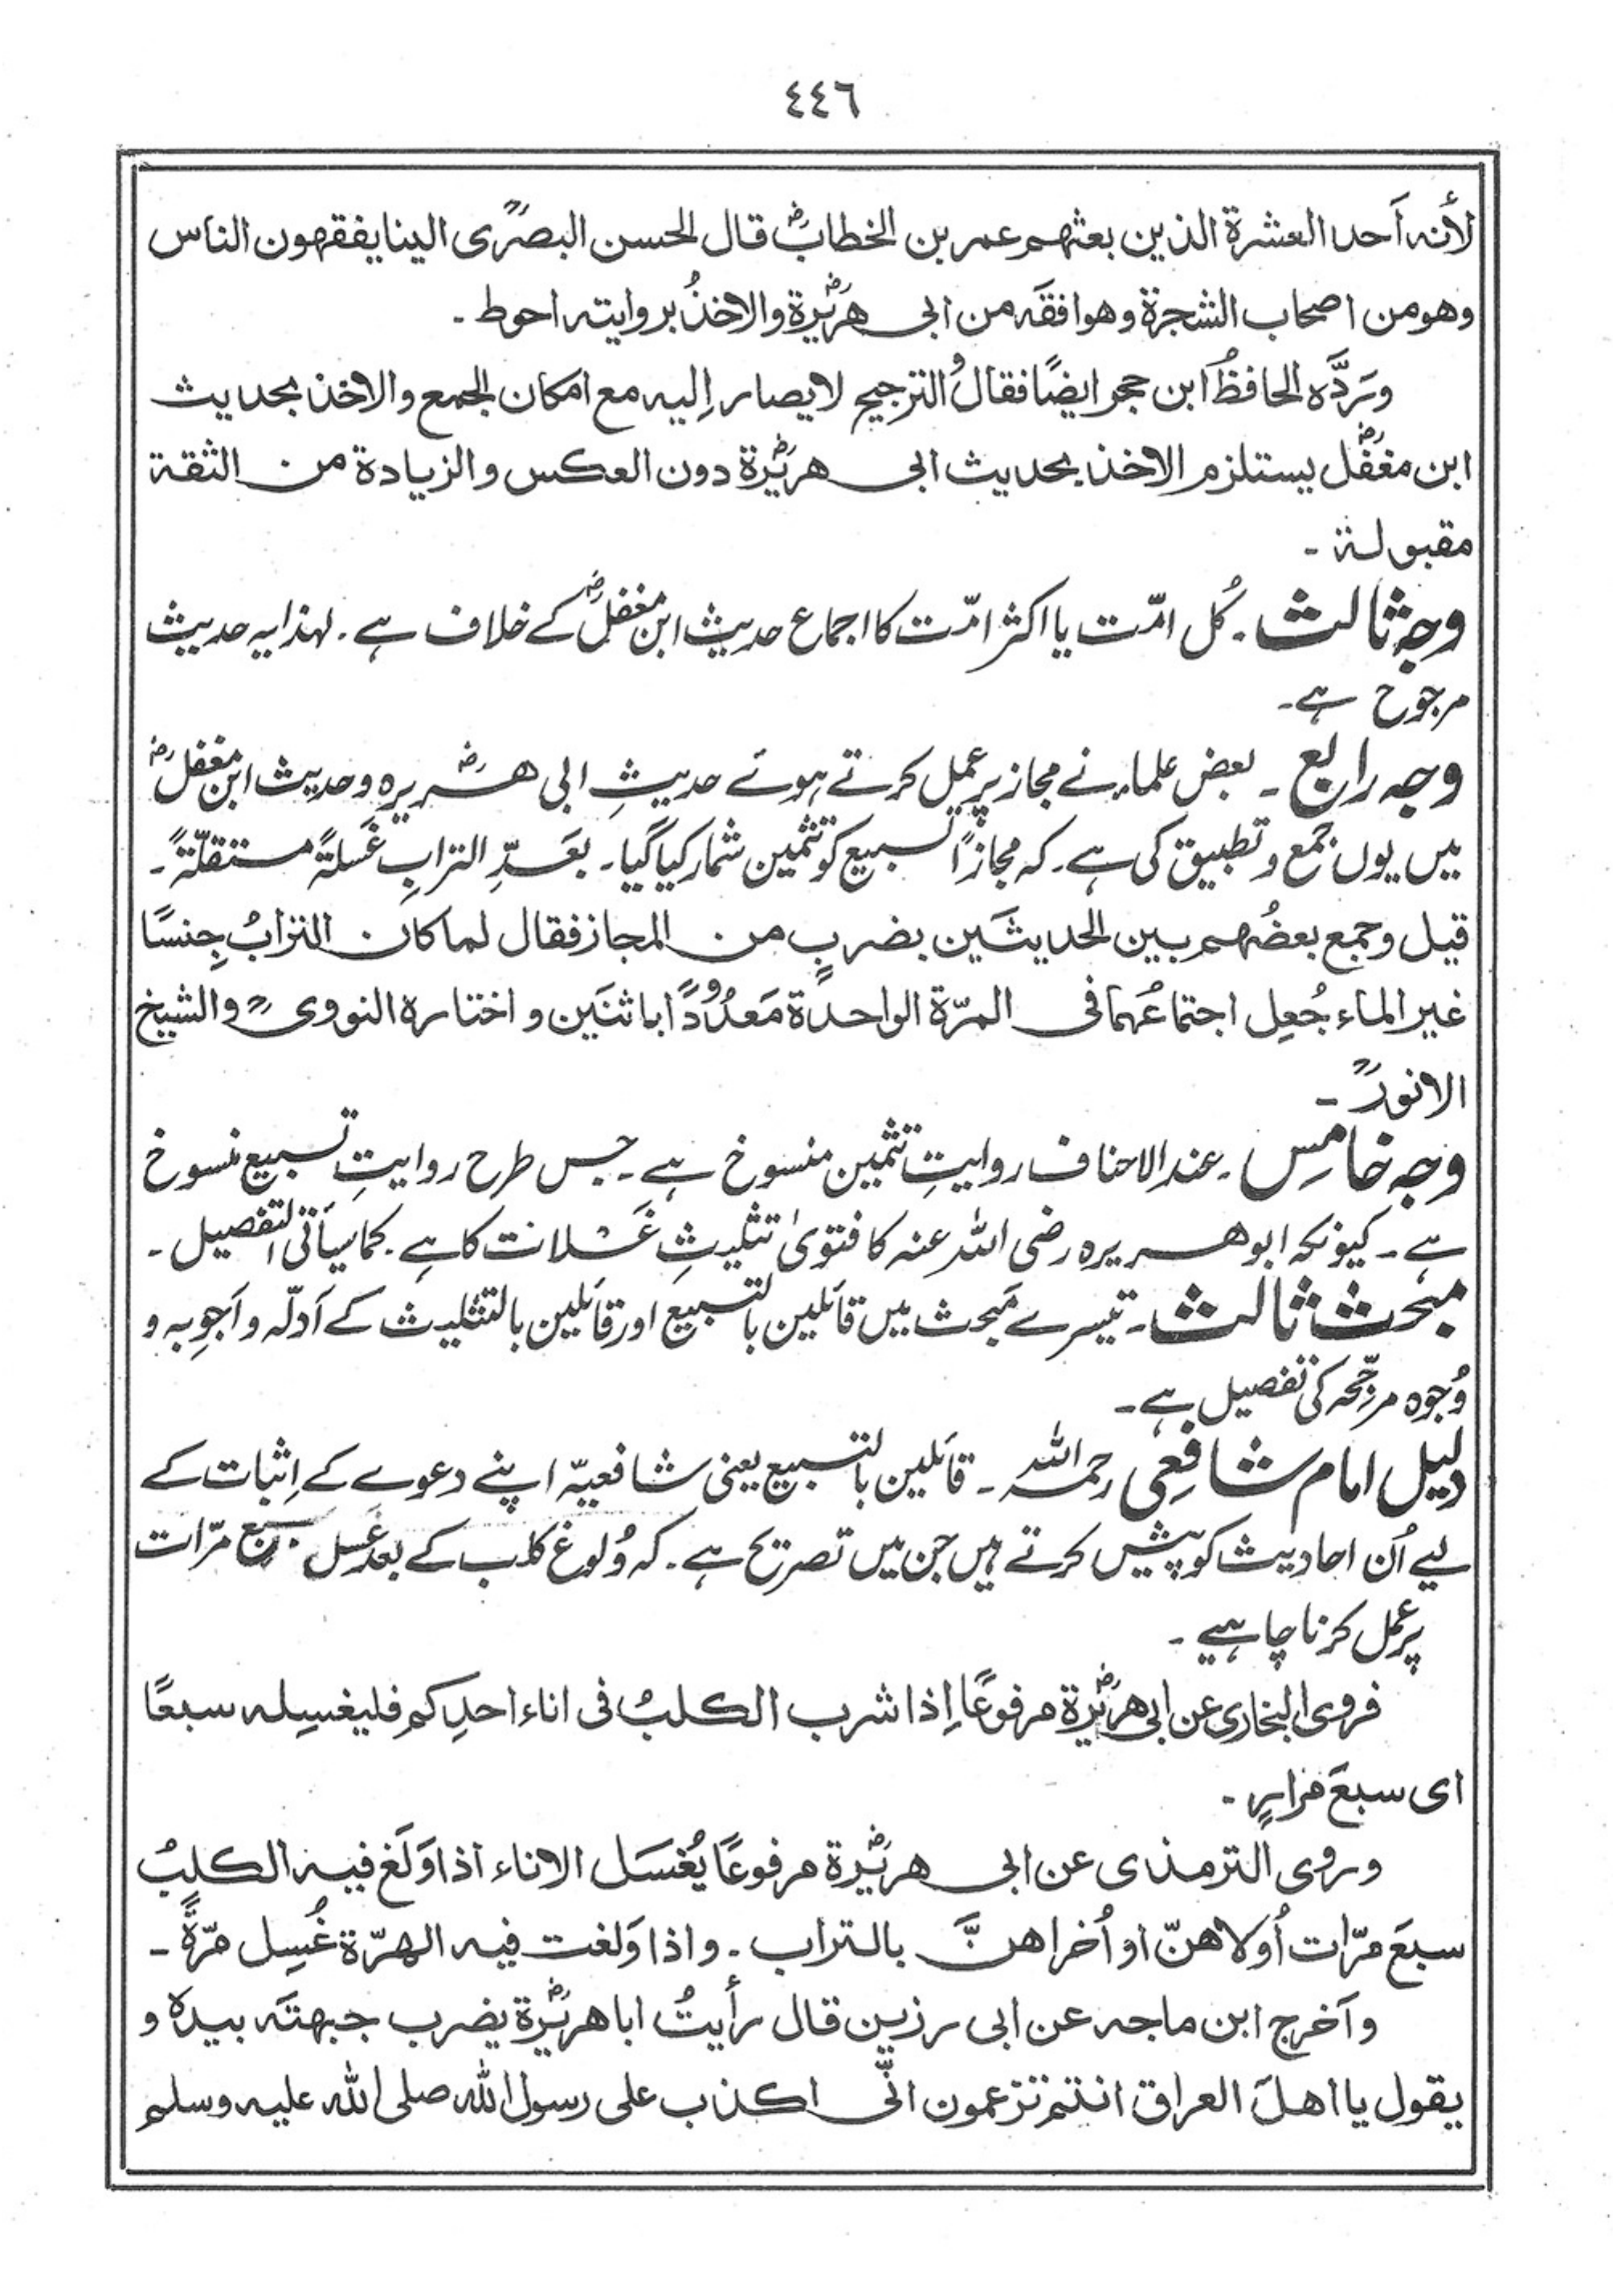 ٤٤٦
لأنه أَحد العشرة الذين بعثهم عمر بن الخطابؓ قال الحسن البصریؒ الینا یفقهون الناس
وهو من اصحاب الشجرة وهو افقَه من ابی هریرةؓ والاخذُ بروایته احوط۔
وردَّه الحافظُ ابن حجر ایضًا فقال الترجیح لا یصار اِلیه مع امکان الجمع والاخذ بحدیث
ابن مغفلؓ یستلزم الاخذ بحدیث ابی هریرةؓ دون العکس والزیادة من الثقة
مقبولة۔
وجہ ثالث۔ کُل امّت یا اکثر امّت کا اجماع حدیث ابن مغفلؓ کے خلاف ہے۔ لہذا یہ حدیث
مرجوح ہے۔
وجہ رابع۔ بعض علماء نے مجاز پر عمل کرتے ہوئے حدیثِ ابی ہریرہؓ و حدیث ابن مغفلؓ
میں یوں جمع و تطبیق کی ہے۔ کہ مجازاً تسبیع کو تثمین شمار کیا گیا۔ بعَدِّ الترابِ غَسلةً مستقلّةً۔
قیل وجمع بعضُهم بین الحدیثَین بضربٍ من المجاز فقال لما کان الترابُ جِنسًا
غیر الماء جُعِل اجتماعُهما فی المرّة الواحدة مَعدُودًا باثنَین و اختاره النووی ؒ والشیخ
الانورؒ۔
وجہ خامِس۔ عند الاحناف روایتِ تثمین منسوخ ہے۔ جس طرح روایتِ تسبیع منسوخ
ہے۔ کیونکہ ابوہریرہ رضی اللہ عنہ کا فتویٰ تثلیثِ غَسْلات کا ہے۔ کما سیأتی التفصیل۔
مبحث ثالث۔ تیسرے مَبحث میں قائلین بالتسبیع اور قائلین بالتثلیث کے اَدلّہ و اَجوِبہ و
وُجوہ مرجِّحہ کی تفصیل ہے۔
دلیل امام شافِعی رحمہ اللہ۔ قائلین بالتسبیع یعنی شافعیّہ اپنے دعوے کے اِثبات کے
لیے اُن احادیث کو پیش کرتے ہیں جن میں تصریح ہے۔ کہ وُلوغ کلب کے بعد غَسل سبع مرّات
پر عمل کرنا چاہیے۔
فروی البخاری عن ابی هریرةؓ مرفوعًا اِذا شرب الکلبُ فی اناء احدِکم فلیغسِله سبعًا
ای سبعَ مرارٍ۔
وروی الترمذی عن ابی هریرةؓ مرفوعًا یُغسَل الاناء اذا وَلَغ فیه الکلبُ
سبعَ مرّات اُولاهنّ او اُخراهنَّ بالتراب۔ واذا وَلغت فیه الهرّة غُسِل مرّةً۔
وأخرج ابن ماجه عن ابی رزین قال رأیتُ اباهریرةؓ یضرب جبهتَه بیده و
یقول یا اهلَ العراق انتم تزعمون انّی اکذب علی رسول الله صلی الله علیه وسلم